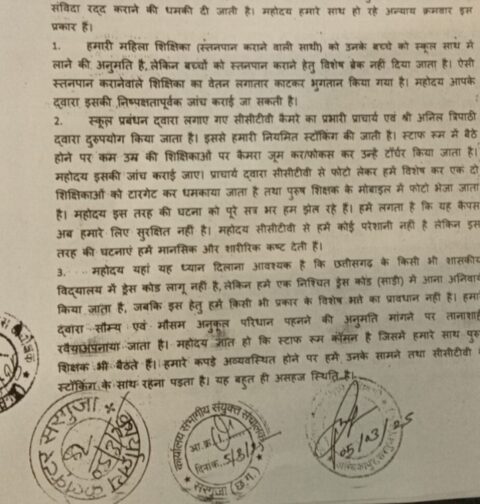 संविदा रद्द कराने की धमकी दी जाती है। महोदय हमारे साथ हो रहे अन्याय क्रमवार इस
प्रकार हैं।
1. हमारी महिला शिक्षिका (स्तनपान कराने वाली साथी) को उनके बच्चे को स्कूल साथ में
लाने की अनुमति है, लेकिन बच्चों को स्तनपान कराने हेतु विशेष ब्रेक नहीं दिया जाता है। ऐसी
स्तनपान करानेवाले शिक्षिका का वेतन लगातार काटकर भुगतान किया गया है। महोदय आपके
द्वारा इसकी निष्पक्षतापूर्वक जांच कराई जा सकती है।
2. स्कूल प्रबंधन द्वारा लगाए गए सीसीटीवी कैमरे का प्रभारी प्राचार्य एवं श्री अनिल त्रिपाठी
द्वारा दुरुपयोग किया जाता है। इससे हमारी नियमित स्टॉकिंग की जाती है। स्टाफ रूम में बैठे
होने पर कम उम्र की शिक्षिकाओं पर कैमरा जूम कर/फोकस कर उन्हें टॉर्चर किया जाता है।
महोदय इसकी जांच कराई जाए। प्राचार्य द्वारा सीसीटीवी से फोटो लेकर हमे विशेष कर एक दो
शिक्षिकाओं को टारगेट कर धमकाया जाता है तथा पुरुष शिक्षक के मोबाइल में फोटो भेजा जाता
है। महोदय इस तरह की घटना को पूरे सत्र भर हम झेल रहे हैं। हमे लगता है कि यह कैंपस
अब हमारे लिए सुरक्षित नहीं है। महोदय सीसीटीवी से हमे कोई परेशानी नहीं है लेकिन इस
तरह की घटनाएं हमे मानसिक और शारीरिक कष्ट देती हैं।
3. महोदय यहां यह ध्यान दिलाना आवश्यक है कि छत्तीसगढ़ के किसी भी शासकीय
विद्यालय में ड्रेस कोड लागू नहीं है, लेकिन हमे एक निश्चित ड्रेस कोड (साड़ी) में आना अनिवार्य
किया जाता है, जबकि इस हेतु हमे किसी भी प्रकार के विशेष भत्ते का प्रावधान नहीं है। हमा
द्वारा सौम्य एवं मौसम अनुकूल परिधान पहनने की अनुमति मांगने पर तानाशाही
रवैया अपनाया जाता है। महोदय ज्ञात हो कि स्टाफ रूम कॉमन है जिसमे हमारे साथ पुरुष
शिक्षक भी बैठते हैं। हमारे कपड़े अव्यवस्थित होने पर हमे उनके सामने तथा सीसीटीवी
स्टॉकिंग के साथ रहना पड़ता है। यह बहुत ही असहज स्थिति है।
कार्यालय कलेक्टर सरगुजा
कार्यालय संभागीय संयुक्त संचालक
आ.क्र.
दिनांक 5/3/25
सरगुजा (छ.ग.)
05/03/25